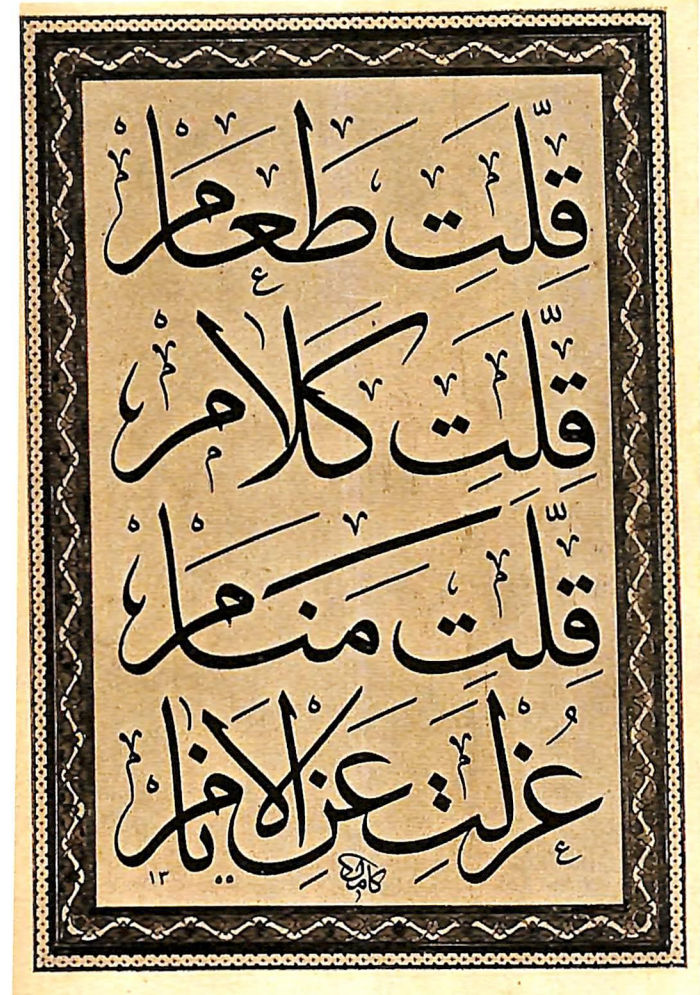 قِلَّتِ طَعَامْ
قِلَّتِ كَلَامْ
قِلَّتِ مَنَامْ
عُزْلَتِ عَنِ الْاَنَامْ